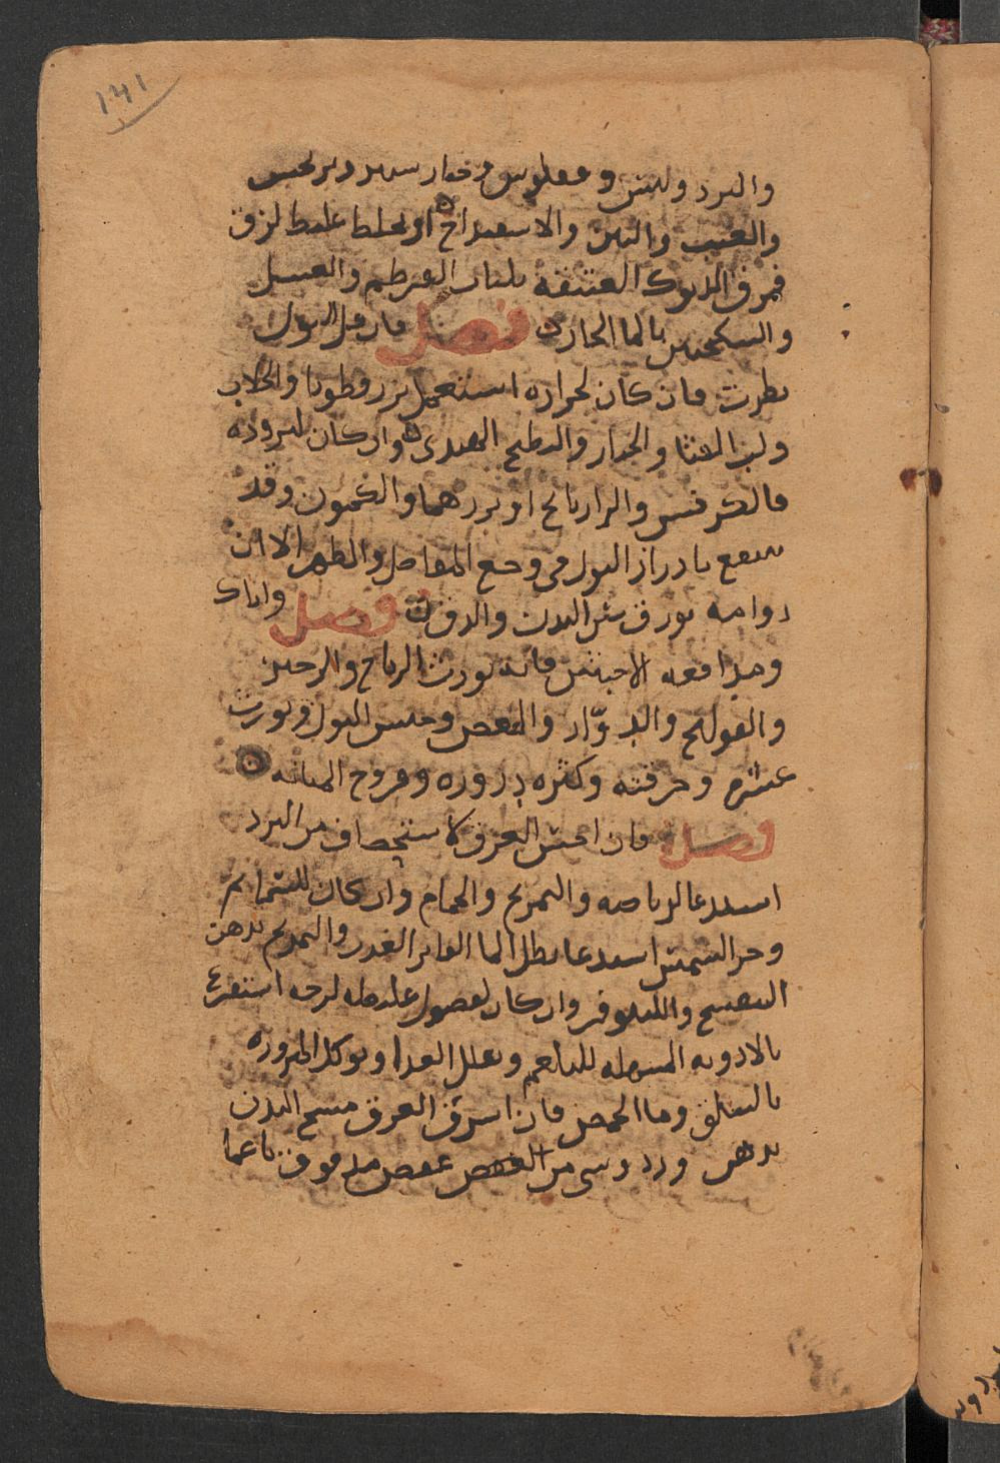 ١٤١
والبرد وليس وفلوس وخيار شنبر وترنجبين
والعنب والتين والاسفيداج او لخلط غليظ لزق
فمرق الديوك العتيقة بلباب القرطم والعسل
والسكنجبين بالما الحار فصل فان قل البول
نظرت فان كان لحرارة استعمل بزر قطونا والجلاب
ولب القثا والخيار والبطيخ الهندي وان كان لبرودة
فالكرفس والرازيانج او بزرهما والكمون وقد
ينتفع بادرار البول في وجع المفاصل والظهر الا ان
دوامه يورث يبس البدن والدق فصل واياك
ومدافعة الاخبثين فانه يورث الرياح والزحير
والقولنج والدوّار والمغص وحبس البول يورث
عسره وحرقته وكثرة دروره وقروح المثانة
فصل فان احتبس العرق لاستحصاف من البرد
استدعا بالرياضة والتمريخ والحمام وان كان للسمايم
وحر الشمس استدعا بطل الما الفاتر الغدر والتمريخ بدهن
البنفسج والنيلوفر وان كان لفضول غليظة لزجة استفرغ
بالادوية المسهلة للبلغم وتقلل الغدا ويوكل المزورة
بالسلق وما الحمص فان اسرف العرق مسح البدن
بدهن ورد وشي من العفص عفص مدقوق ناعما